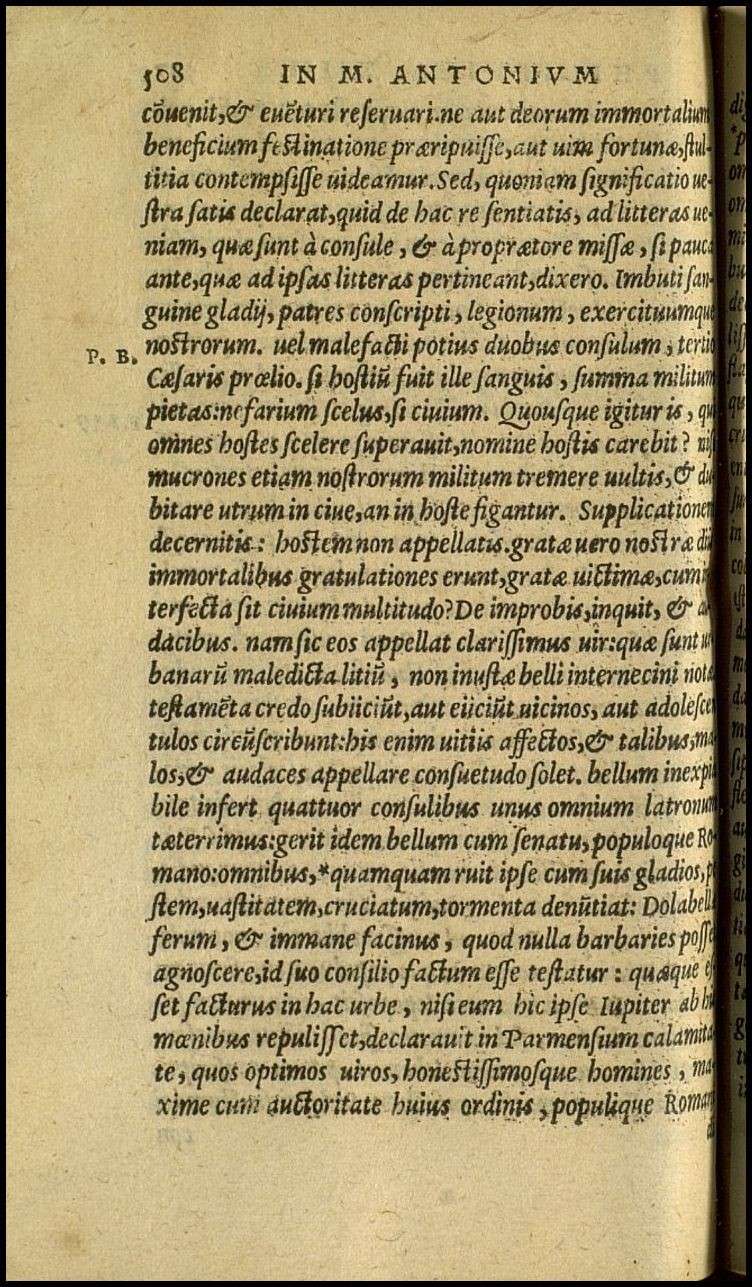 508 IN M. ANTONIVM
cōuenit, & euẽturi reſeruari. ne aut deorum immortalium
beneficium feſtinatione præripuiſſe, aut uim fortunæ, ſtul-
titia contempſiſſe uideamur. Sed, quoniam ſignificatio ue-
ſtra ſatis declarat, quid de hac re ſentiatis, ad litteras ue-
niam, quæ ſunt à conſule, & à proprætore miſſæ, ſi pauca
ante, quæ ad ipſas litteras pertineant, dixero. Imbuti ſan-
guine gladij, patres conſcripti, legionum, exercituumque
P. B. noſtrorum. uel malefacti potius duobus conſulum, tertio
Cæſaris prœlio. ſi hoſtiũ fuit ille ſanguis, ſumma militum
pietas: nefarium ſcelus, ſi ciuium. Quouſque igitur is, qui
omnes hoſtes ſcelere ſuperauit, nomine hoſtis carebit? niſi
mucrones etiam noſtrorum militum tremere uultis, & du
bitare utrum in ciue, an in hoſte figantur. Supplicationem
decernitis: hoſtem non appellatis. gratæ uero noſtræ diis
immortalibus gratulationes erunt, gratæ uictimæ, cum in
terfecta ſit ciuium multitudo? De improbis, inquit, & au
dacibus. nam ſic eos appellat clariſſimus uir: quæ ſunt ur
banarũ maledicta litiũ, non inuſtæ belli internecini notæ
teſtamẽta credo ſubiiciũt, aut eiiciũt uicinos, aut adoleſcẽ
tulos circũſcribunt: his enim uitiis affectos, & talibus, ma
los, & audaces appellare conſuetudo ſolet. bellum inexpia
bile infert quattuor conſulibus unus omnium latronum
tæterrimus: gerit idem bellum cum ſenatu, populoque Ro
mano: omnibus, *quamquam ruit ipſe cum ſuis gladios, pe
ſtem, uaſtitatem, cruciatum, tormenta denũtiat: Dolabellæ
ferum, & immane facinus, quod nulla barbaries poſſet
agnoſcere, id ſuo conſilio factum eſſe teſtatur: quæque eſ
ſet facturus in hac urbe, niſi eum hic ipſe Iupiter ab his
mœnibus repuliſſet, declarauit in Parmenſium calamita
te, quos optimos uiros, honeſtiſſimoſque homines, ma-
xime cum auctoritate huius ordinis, populique Romani